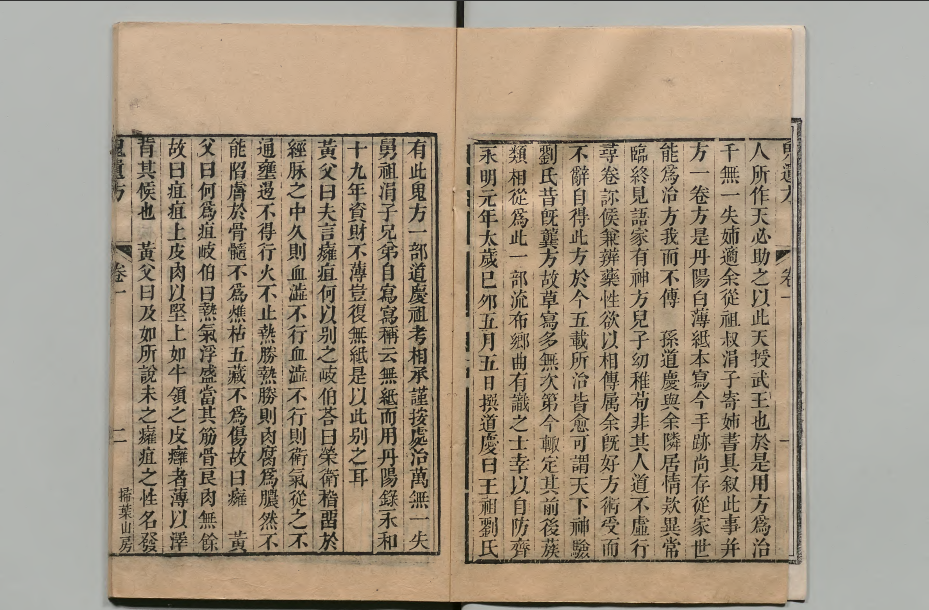 人所作天必助之以此天授武王也於是用方為治
千無一失姊適余從祖叔涓子寄姊書具叙此事并
方一卷方是丹陽白薄紙本寫今手跡尚存從家世
能為治方我而不傳　孫道慶與余隣居情欵異常
臨終見語家有神方兒子幼稚苟非其人道不虛行
尋卷診候兼辨藥性欲以相傳属余旣好方術受而
不辭自得此方於今五載所治皆愈可謂天下神驗
劉氏昔旣龔方故草寫多無次第今輙定其前後蔟
類相從為此一部流布鄉曲有識之士幸以自防齊
永明元年太歲巳夘五月五日撰道慶曰王祖劉氏
鬼遺方
卷一
一
有此鬼方一部道慶祖考相承謹按處治萬無一失
舅祖涓子兄弟自寫寫稱云無紙而用丹陽錄永和
十九年資財不薄豈復無紙是以此别之耳
黃父曰夫言癰疽何以别之岐伯荅曰榮衛稽畱於
經脉之中久則血澁不行血澁不行則衛氣從之不
通壅遏不得行火不止熱勝熱勝則肉腐爲膿然不
能陷膚於骨髓不爲燋枯五藏不爲傷故曰癰　黃
父曰何爲疽岐伯曰熱氣浮盛當其筋骨良肉無餘
故曰疽疽上皮肉以堅上如牛領之皮癰者薄以澤
背其候也　黃父曰及如所說未之癰疽之性名發
鬼遺方
卷一
二
掃葉山房